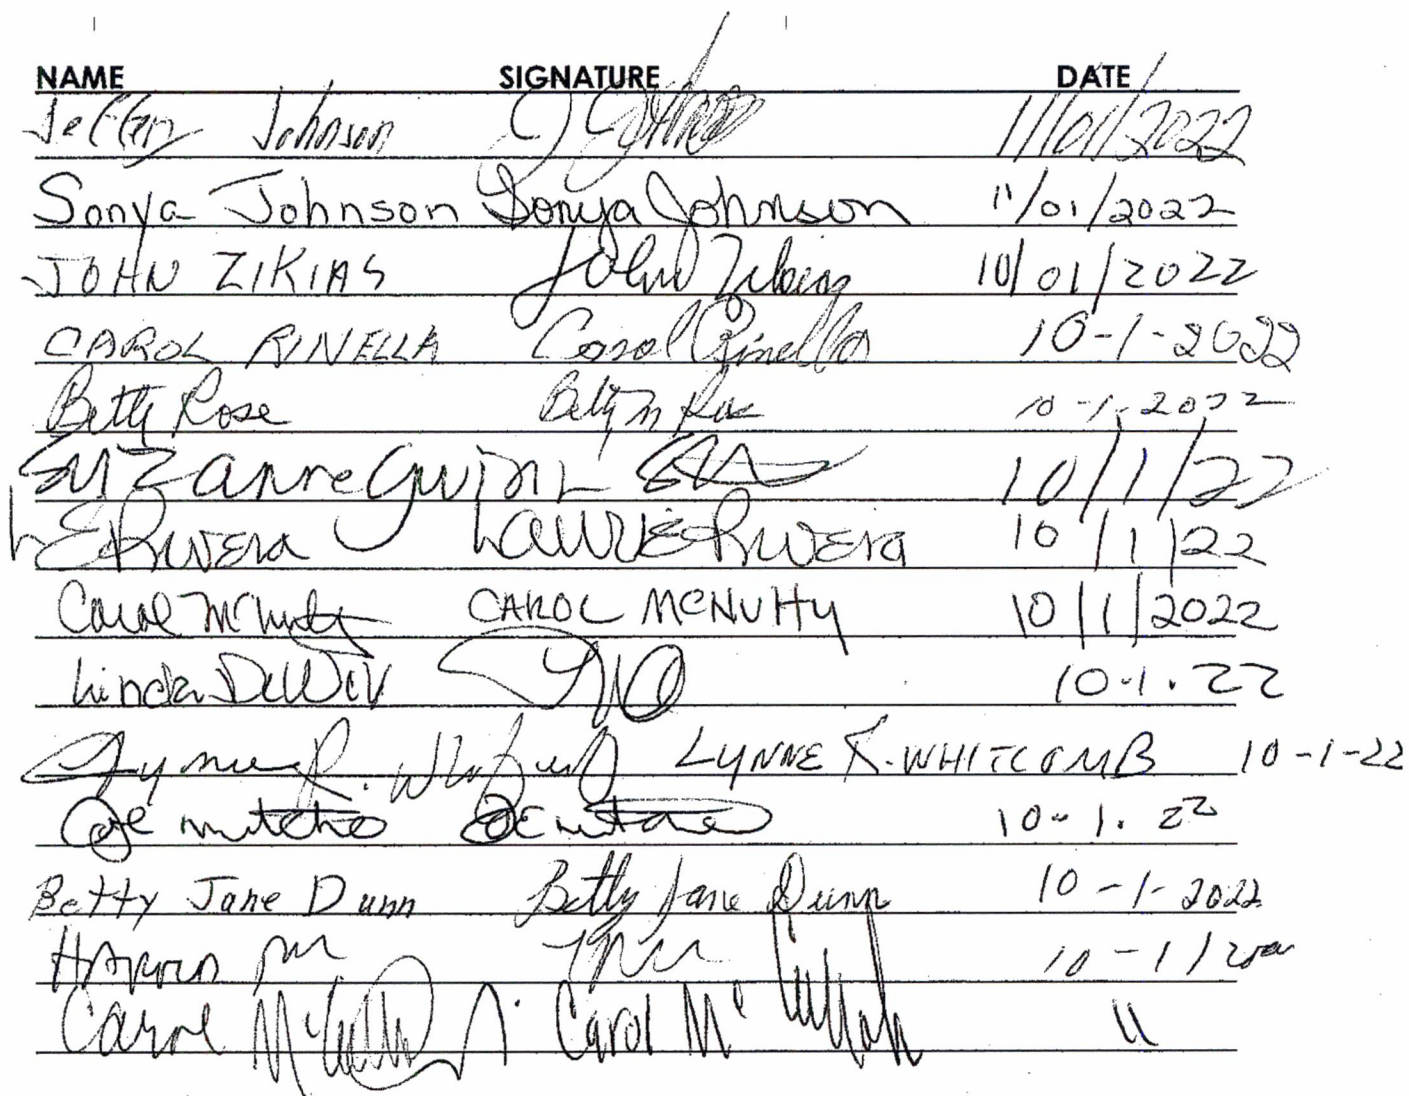 NAME SIGNATURE DATE
Jeffery Johnson 11/01/2022
Sonya Johnson Sonya Johnson 11/01/2022
JOHN ZIKIAS John Zikias 10/01/2022
CAROL RINELLA Carol Rinella 10-1-2022
Betty Rose Betty M Rose 10-1-2022
Suzanne Gwinn 10/1/22
LE Rivera LAURIE Rivera 10/1/22
Carol McNulty CAROL MCNUlty 10/1/2022
Linda DeWitt 10-1-22
Lynne R. Whitcomb LYNNE R. WHITCOMB 10-1-22
10-1-22
Betty Jane Dunn Betty Jane Dunn 10-1-2022
10-1/2022
Carol Carol Mc "